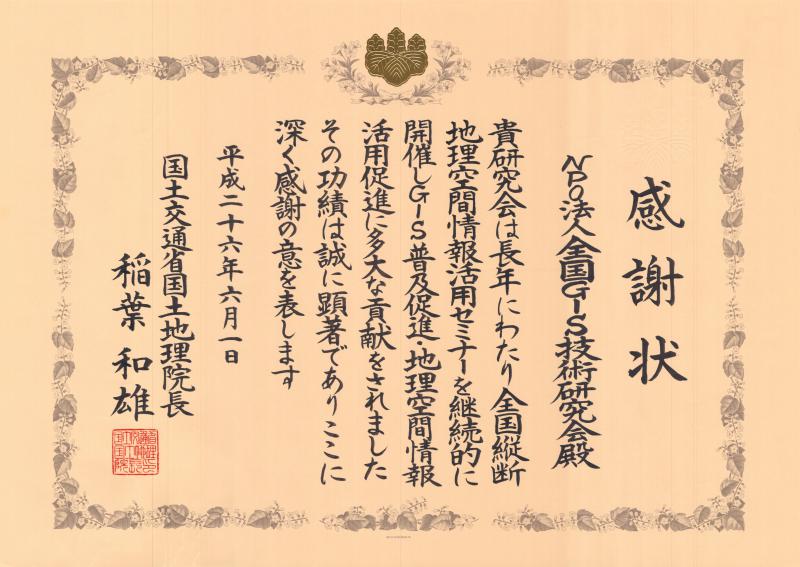 感謝状
NPO法人全国GIS技術研究会殿
貴研究会は長年にわたり全国縦断
地理空間情報活用セミナーを継続的に
開催しGIS普及促進・地理空間情報
活用促進に多大な貢献をされました
その功績は誠に顕著でありここに
深く感謝の意を表します
平成二十六年六月一日
国土交通省国土地理院長
稲葉和雄